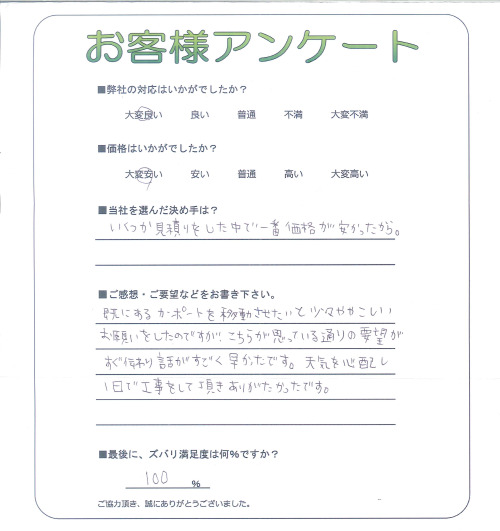 お客様アンケート
■弊社の対応はいかがでしたか？
大変良い 良い 普通 不満 大変不満
■価格はいかがでしたか？
大変安い 安い 普通 高い 大変高い
■当社を選んだ決め手は？
いくつか見積りをした中で一番価格が安かったから。
■ご感想・ご要望などをお書き下さい。
既にあるカーポートを移動させたいと少々ややこしい
お願いをしたのですが、こちらが思っている通りの要望が
すぐ伝わり話がすごく早かったです。天気を心配し
1日で工事をして頂きありがたかったです。
■最後に、ズバリ満足度は何%ですか？
100 %
ご協力頂き、誠にありがとうございました。